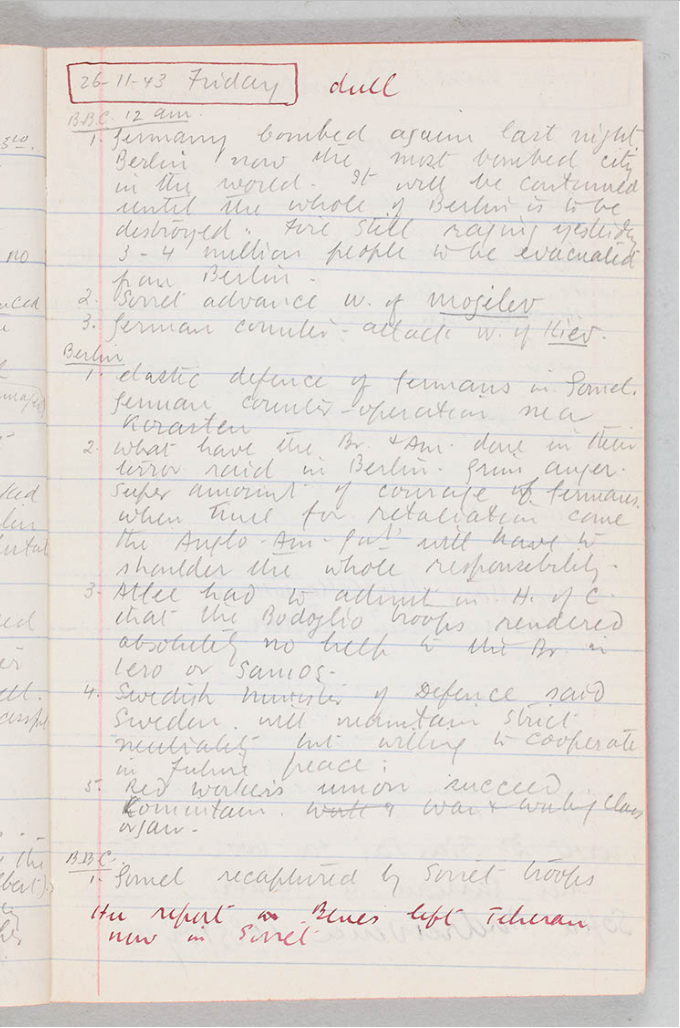 26-11-43 Friday dull
B.B.C. 12 am.
1. Germany bombed again last night.
Berlin now the most bombed city
in the world. It will be continued
until the whole of Berlin is to be
destroyed. Fire still raging yesterday
3-4 million people to be evacuated
from Berlin.
2. Soviet advance W. of Mogilev
3. German counter-attack W. of Kiev.
Berlin
1. elastic defence of Germans in Gomel.
German counter-operation near
Korosten
2. What have the Br. & Am. done in their
terror raid in Berlin. Grim anger.
Super amount of courage of Germans.
When time for retaliation come
the Anglo-Am- will have to
shoulder the whole responsebility.
3. Atlee had to admit in H. of C.
that the Badoglio troops rendered
absolutely no help to the Br. in
Lero or Samos.
4. Swedish Minister of Defence said
Sweden will maintain strict
neutrality but willing to cooperate
in future peace.
5. Red workers union succeed
Commintarn. & War & working Class
organ.
B.B.C.
1. Gomel recaptured by Soviet troops
report Benes left Teheran
now in Soviet